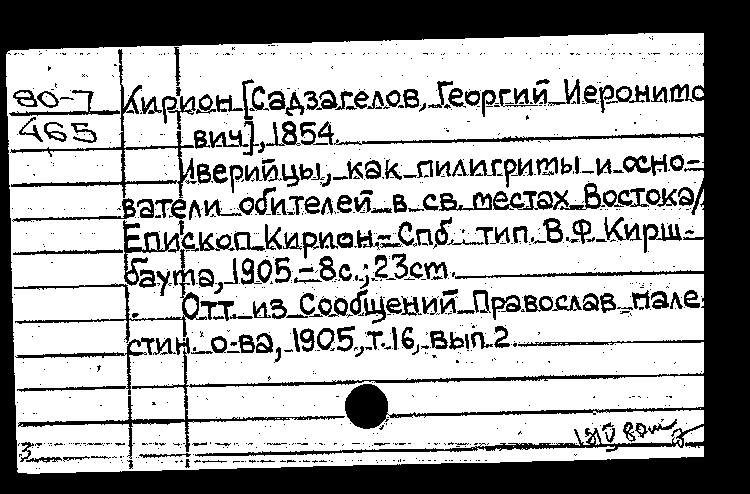 80-7 Кирион [Садзагелов, Георгий Иеронимо
465 вич], 1854.
Иверийцы, как пилигримы и осно-
ватели обителей в св. местах Востока/
Епископ Кирион.- Спб.: тип. В.Ф. Кирш-
баума, 1905.- 8с.; 23см.
Отт. из Сообщений Православ. пале
стин. о-ва, 1905, т.16, вып. 2.
3